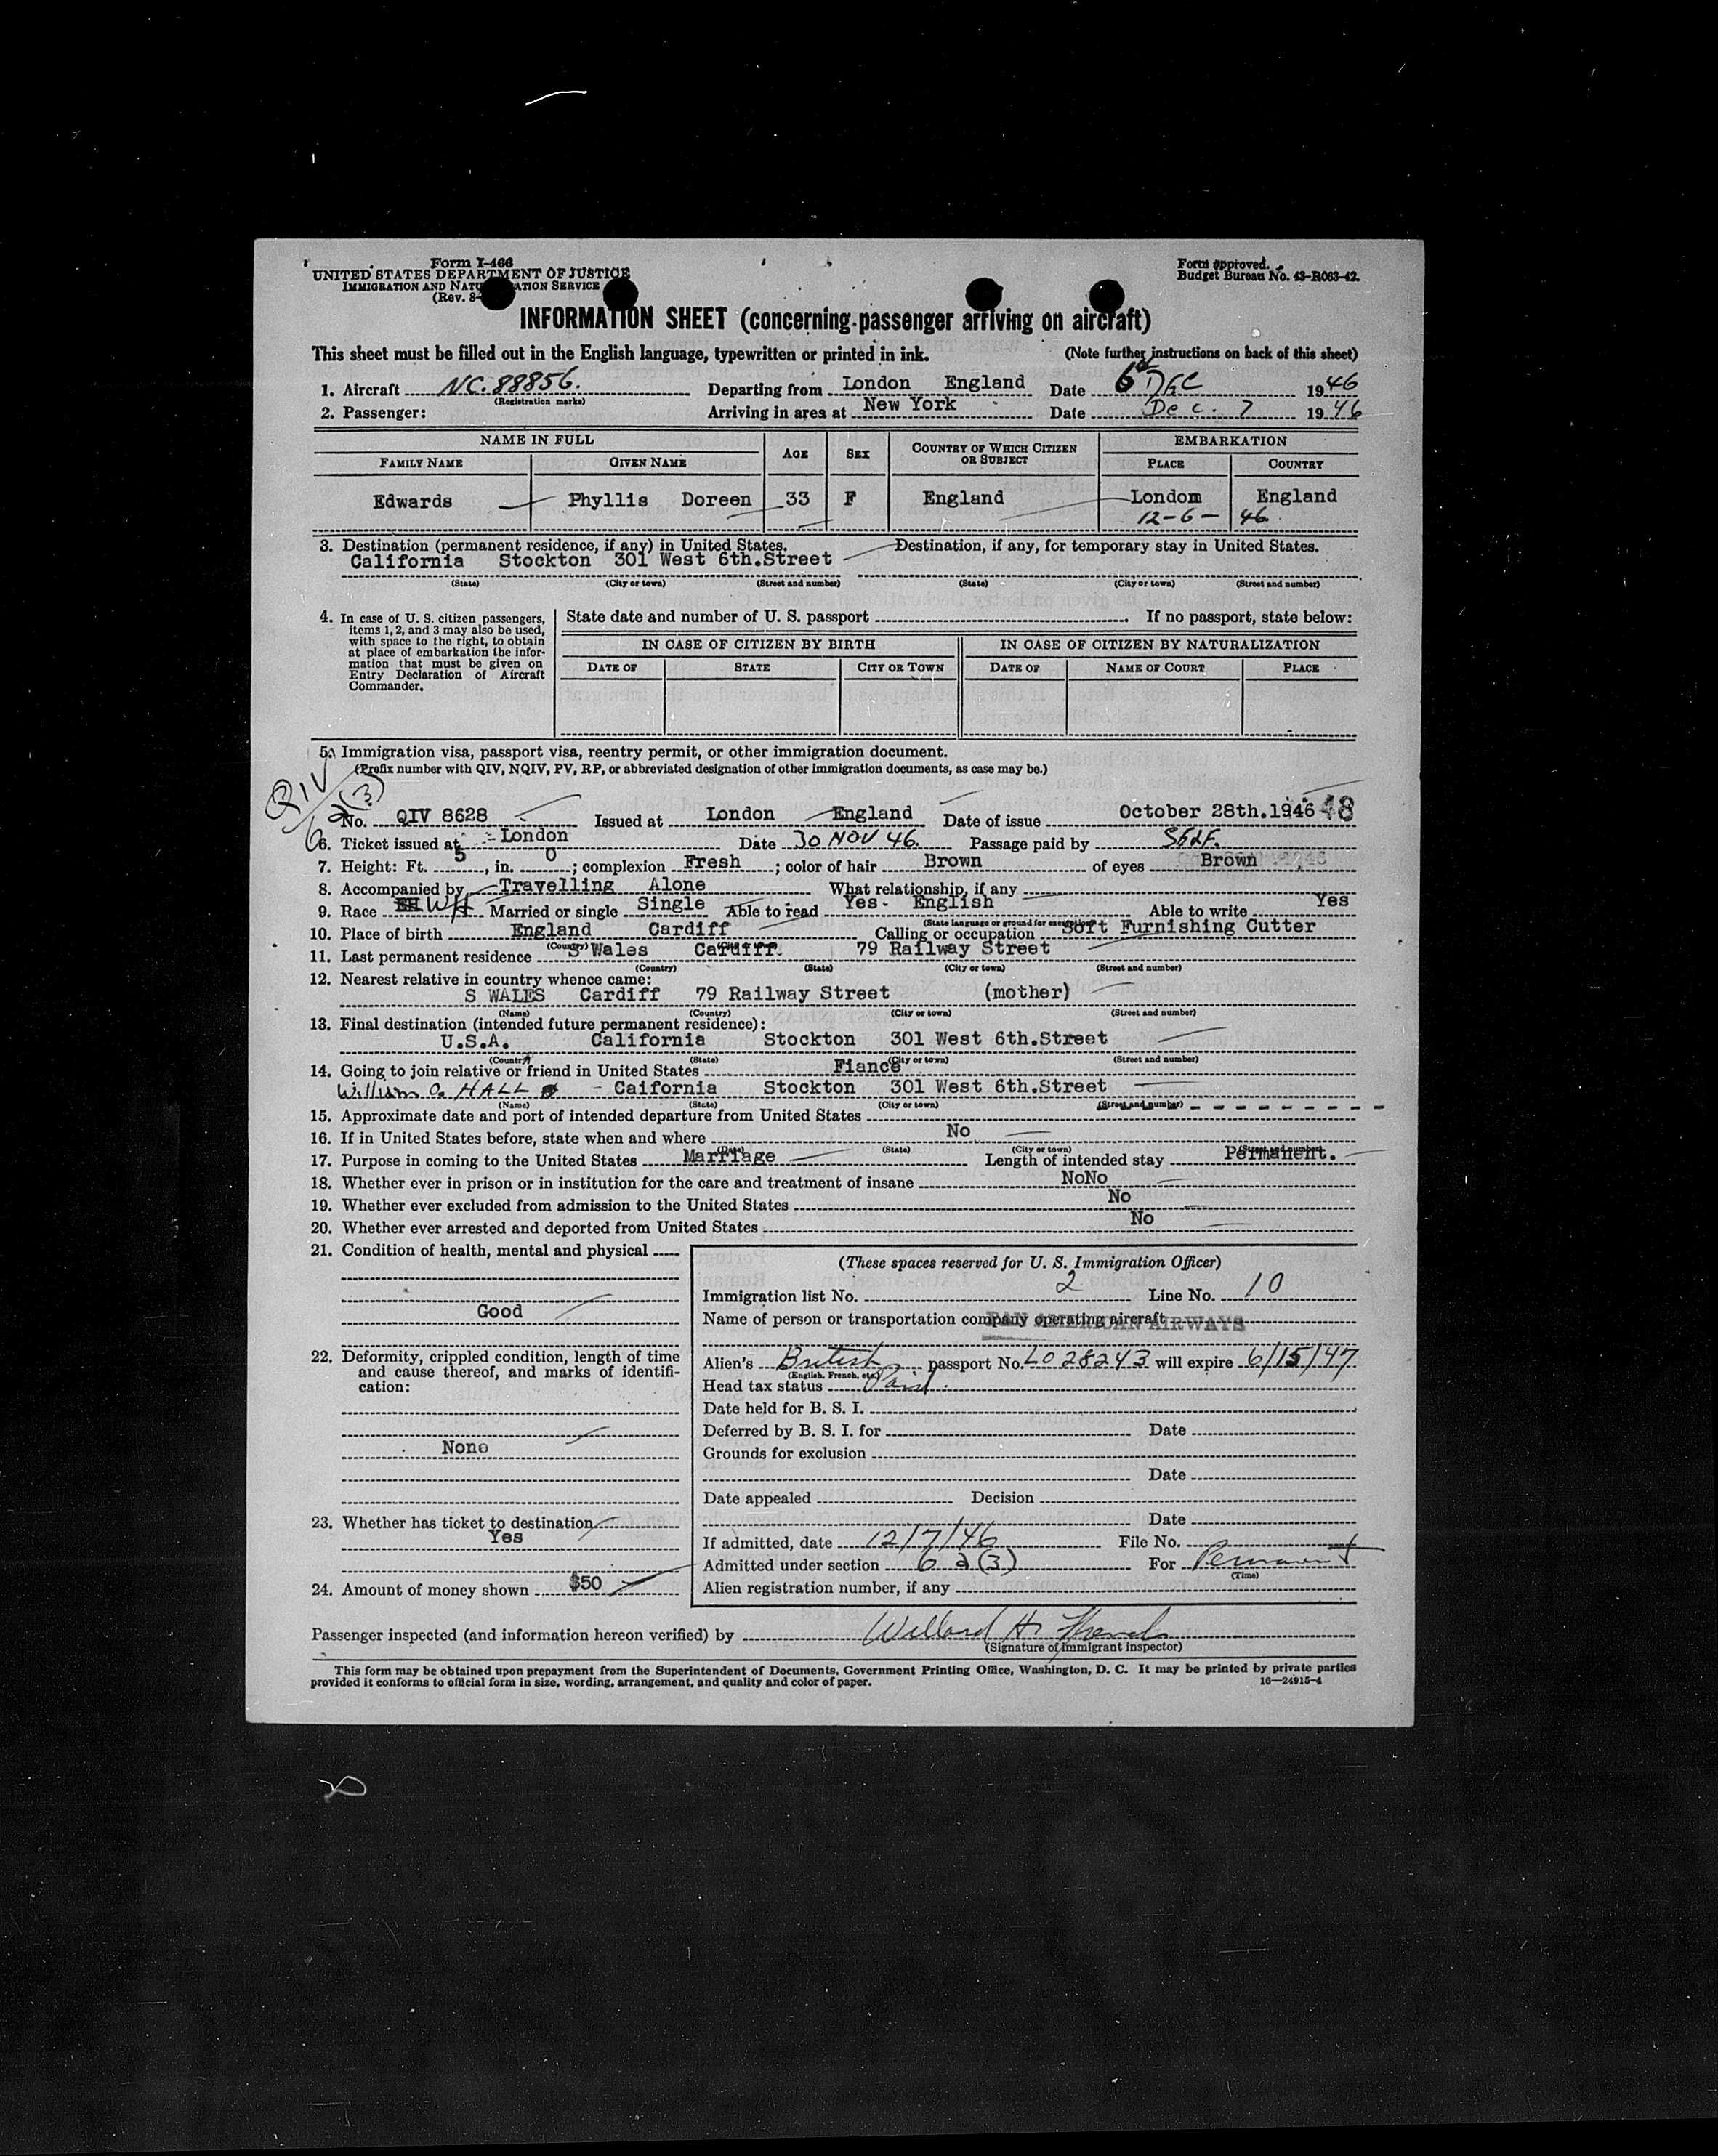 Form I-466
UNITED STATES DEPARTMENT OF JUSTICE
IMMIGRATION AND NATU ATION SERVICE
(Rev. 8-
Form approved.
Budget Bureau No. 43-R063-42.
INFORMATION SHEET (concerning passenger arriving on aircraft)
This sheet must be filled out in the English language, typewritten or printed in ink. (Note further instructions on back of this sheet)
1. Aircraft NC.88856. Departing from London England Date 6th DEC 1946
(Registration marks)
2. Passenger: Arriving in area at New York Date Dec. 7 1946
NAME IN FULL AGE SEX COUNTRY OF WHICH CITIZEN OR SUBJECT EMBARKATION
FAMILY NAME GIVEN NAME PLACE COUNTRY
Edwards Phyllis Doreen 33 F England Londom England
12-6-46
3. Destination (permanent residence, if any) in United States. Destination, if any, for temporary stay in United States.
California Stockton 301 West 6th.Street
(State) (City or town) (Street and number) (State) (City or town) (Street and number)
4. In case of U. S. citizen passengers, items 1, 2, and 3 may also be used, with space to the right, to obtain at place of embarkation the information that must be given on Entry Declaration of Aircraft Commander.
State date and number of U. S. passport If no passport, state below:
IN CASE OF CITIZEN BY BIRTH IN CASE OF CITIZEN BY NATURALIZATION
DATE OF STATE CITY OR TOWN DATE OF NAME OF COURT PLACE
5. Immigration visa, passport visa, reentry permit, or other immigration document.
(Prefix number with QIV, NQIV, PV, RP, or abbreviated designation of other immigration documents, as case may be.)
QIV
6 2(3)
No. QIV 8628 Issued at London England Date of issue October 28th.1946 48
6. Ticket issued at London Date 30 NOV 46. Passage paid by SELF.
7. Height: Ft. 5, in. 0; complexion Fresh; color of hair Brown of eyes Brown
8. Accompanied by Travelling Alone What relationship, if any
9. Race WH Married or single Single Able to read Yes- English Able to write Yes
(State language or ground for exemption)
10. Place of birth England Cardiff Calling or occupation Soft Furnishing Cutter
(Country) (City or town)
11. Last permanent residence S Wales Cardiff. 79 Railway Street
(Country) (State) (City or town) (Street and number)
12. Nearest relative in country whence came:
S WALES Cardiff 79 Railway Street (mother)
(Name) (Country) (City or town) (Street and number)
13. Final destination (intended future permanent residence):
U.S.A. California Stockton 301 West 6th.Street
(Country) (State) (City or town) (Street and number)
14. Going to join relative or friend in United States Fiance
William O. HALL - Caifornia Stockton 301 West 6th.Street
(Name) (State) (City or town) (Street and number)
15. Approximate date and port of intended departure from United States
16. If in United States before, state when and where No
(Date) (State) (City or town) (Street and number)
17. Purpose in coming to the United States Marriage Length of intended stay Permanent.
18. Whether ever in prison or in institution for the care and treatment of insane NoNo
19. Whether ever excluded from admission to the United States No
20. Whether ever arrested and deported from United States No
21. Condition of health, mental and physical
Good
22. Deformity, crippled condition, length of time and cause thereof, and marks of identification:
None
23. Whether has ticket to destination
Yes
24. Amount of money shown $50
(These spaces reserved for U. S. Immigration Officer)
Immigration list No. 2 Line No. 10
Name of person or transportation company operating aircraft PAN AMERICAN AIRWAYS
Alien's British passport No. LO 28243 will expire 6/15/47
(English, French, etc.)
Head tax status Paid.
Date held for B. S. I.
Deferred by B. S. I. for Date
Grounds for exclusion
Date
Date appealed Decision
Date
If admitted, date 12/7/46 File No.
Admitted under section 6 2(3) For Permanent
(Time)
Alien registration number, if any
Passenger inspected (and information hereon verified) by Willard H.
(Signature of immigrant inspector)
This form may be obtained upon prepayment from the Superintendent of Documents, Government Printing Office, Washington, D. C. It may be printed by private parties
provided it conforms to official form in size, wording, arrangement, and quality and color of paper. 16—24915-4